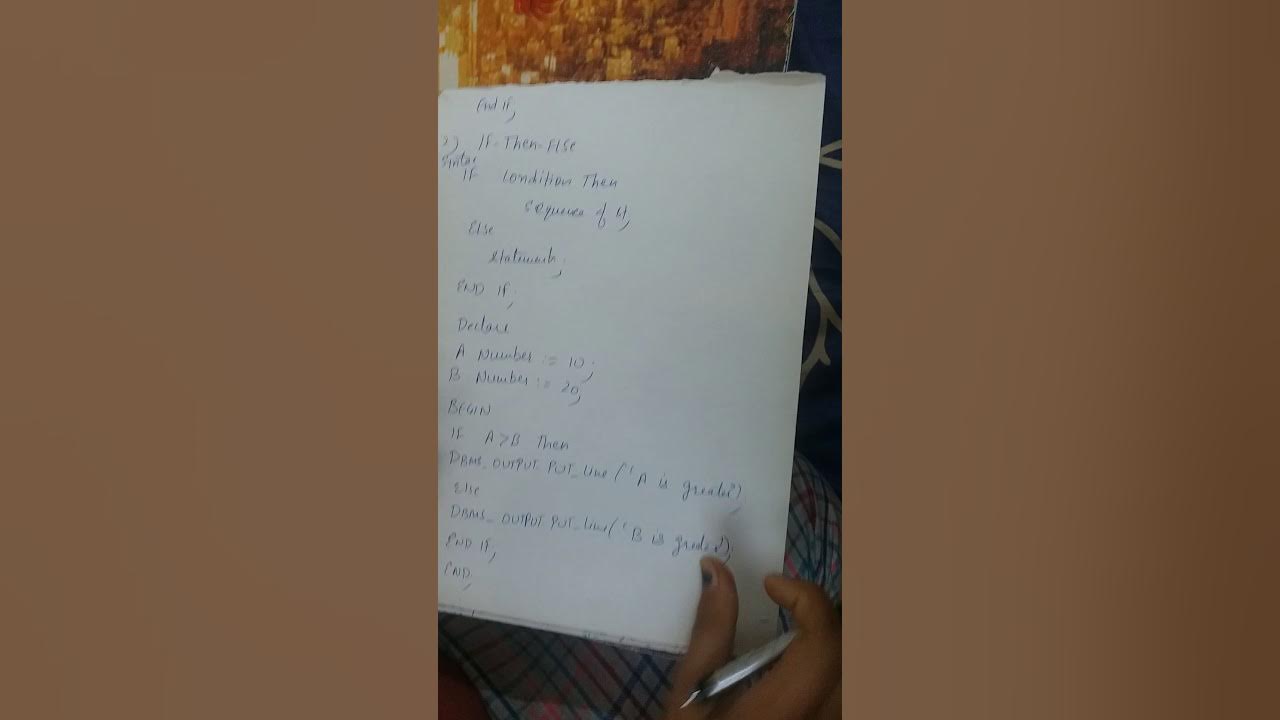 End if;
2) IF-Then-Else
Syntax
IF Condition Then
Sequence of st;
Else
Statements;
END IF;
Declare
A Number := 10;
B Number := 20;
BEGIN
IF A>B Then
DBMS_OUTPUT.PUT_Line('A is greater')
Else
DBMS_OUTPUT.PUT_Line('B is greater');
END IF;
END;